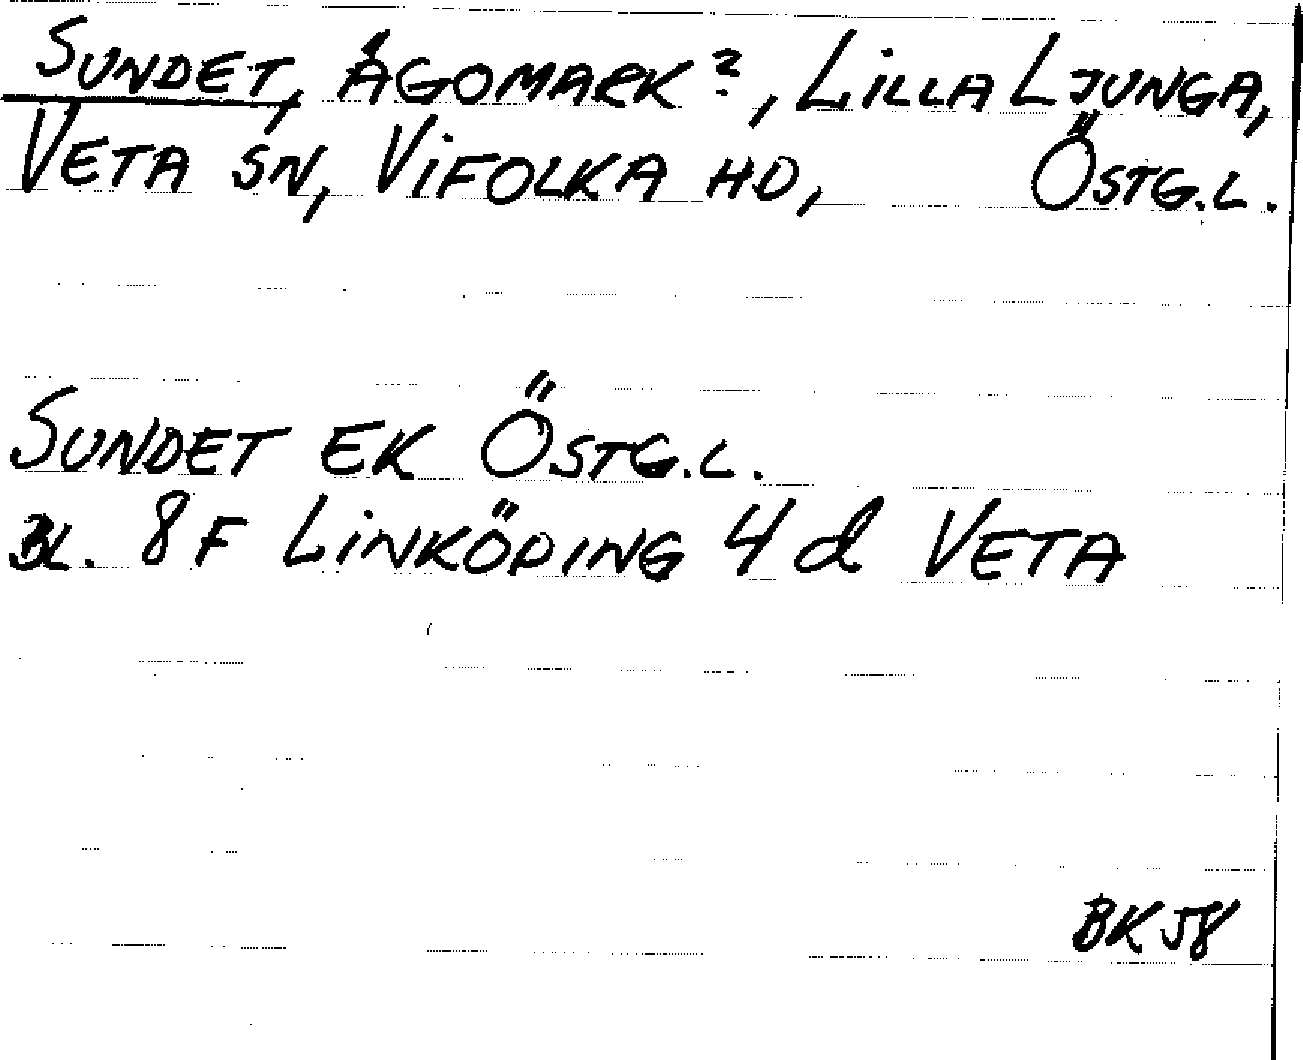 Sundet, Ägomark?, Lilla Ljunga,
Veta sn, Vifolka hd, Östg.l.
Sundet ek Östg.l.
Bl. 8F Linköping 4d Veta
BK 58